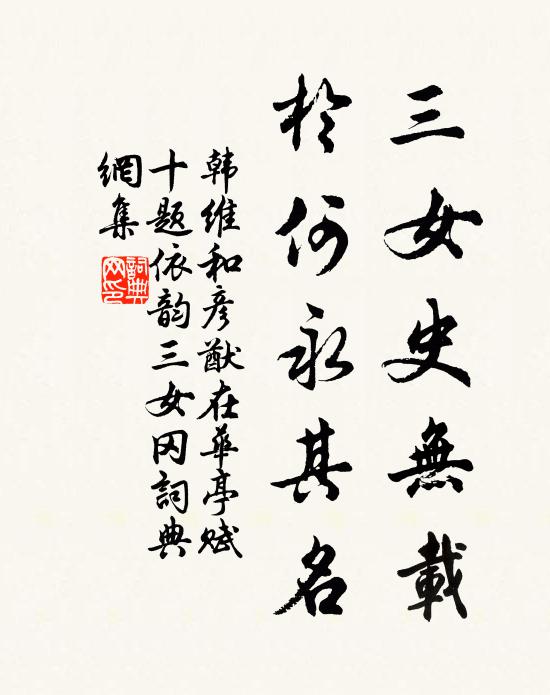 三女史無載
於何永其名
韩維和彦猷在華亭赋
十题依韵三女冈詞典
網集
詞典
网印